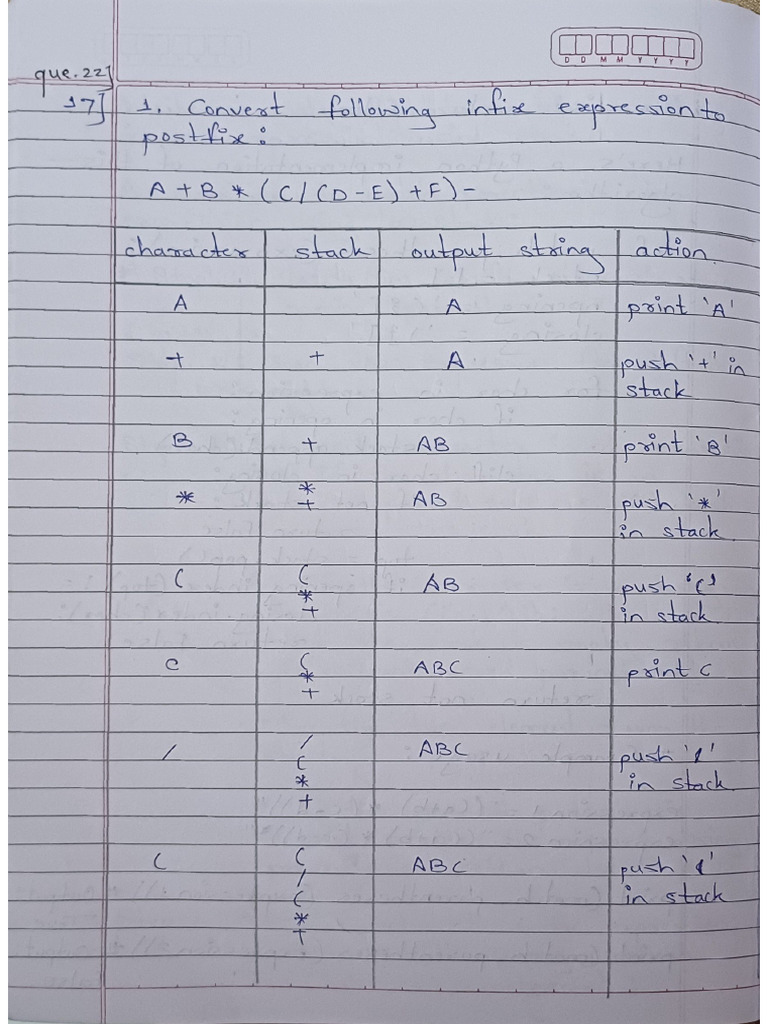 D D M M Y Y Y Y
que.22]
17] 1. Convert following infix expression to
postfix :
A + B * ( C / ( D - E ) + F ) -
character stack output string action.
A A print 'A'
+ + A push '+' in
stack
B + AB print 'B'
* * AB push '*'
+ in stack
( ( AB push '('
* in stack
+
C ( ABC print C
*
+
/ / ABC push '/'
( in stack
*
+
( ( ABC push '('
/ in stack
(
*
+